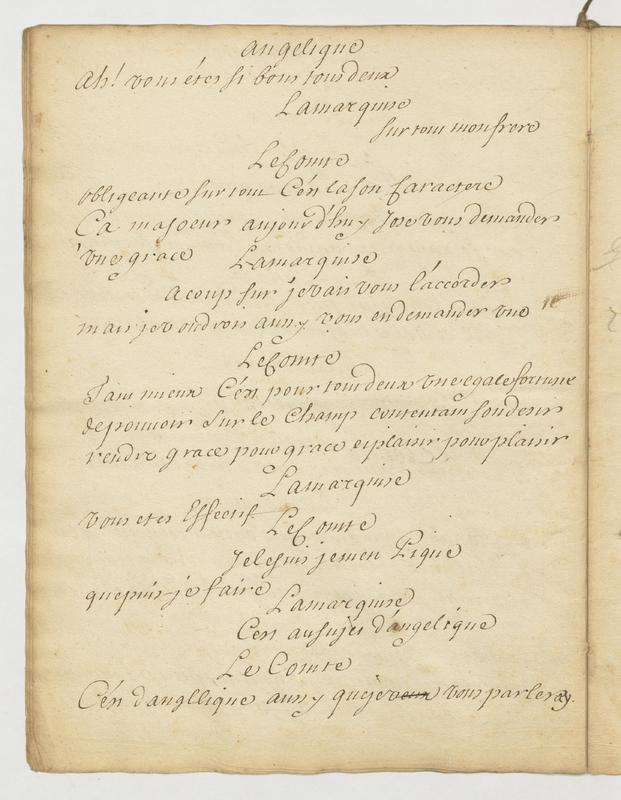 Angelique
Ah! vous étes si bons tous deux
Lamarquise
sur tout mon frere
LeComte
obligeante sur tout C'én lason Caractere
C'a ma soeur aujourd'huy Jose vous demander
'vne grace Lamarquise
Acoup sur je vais vous l'accorder
mais je voudrois aussy vous en demander vne
LeComte
Tam mieux C'en pour tous deux vne egale fortune
de pouvoir sur le Champ contentam son desir
rendre grace pour grace et plaisir pour plaisir
Lamarquise
vous etes Effectif
LeComte
Je le suis je men Pique
que puis-je faire
Lamarquise
C'en au sujet d'angelique
Le Comte
C'én d'angllique aussy que je veux vous parleray.